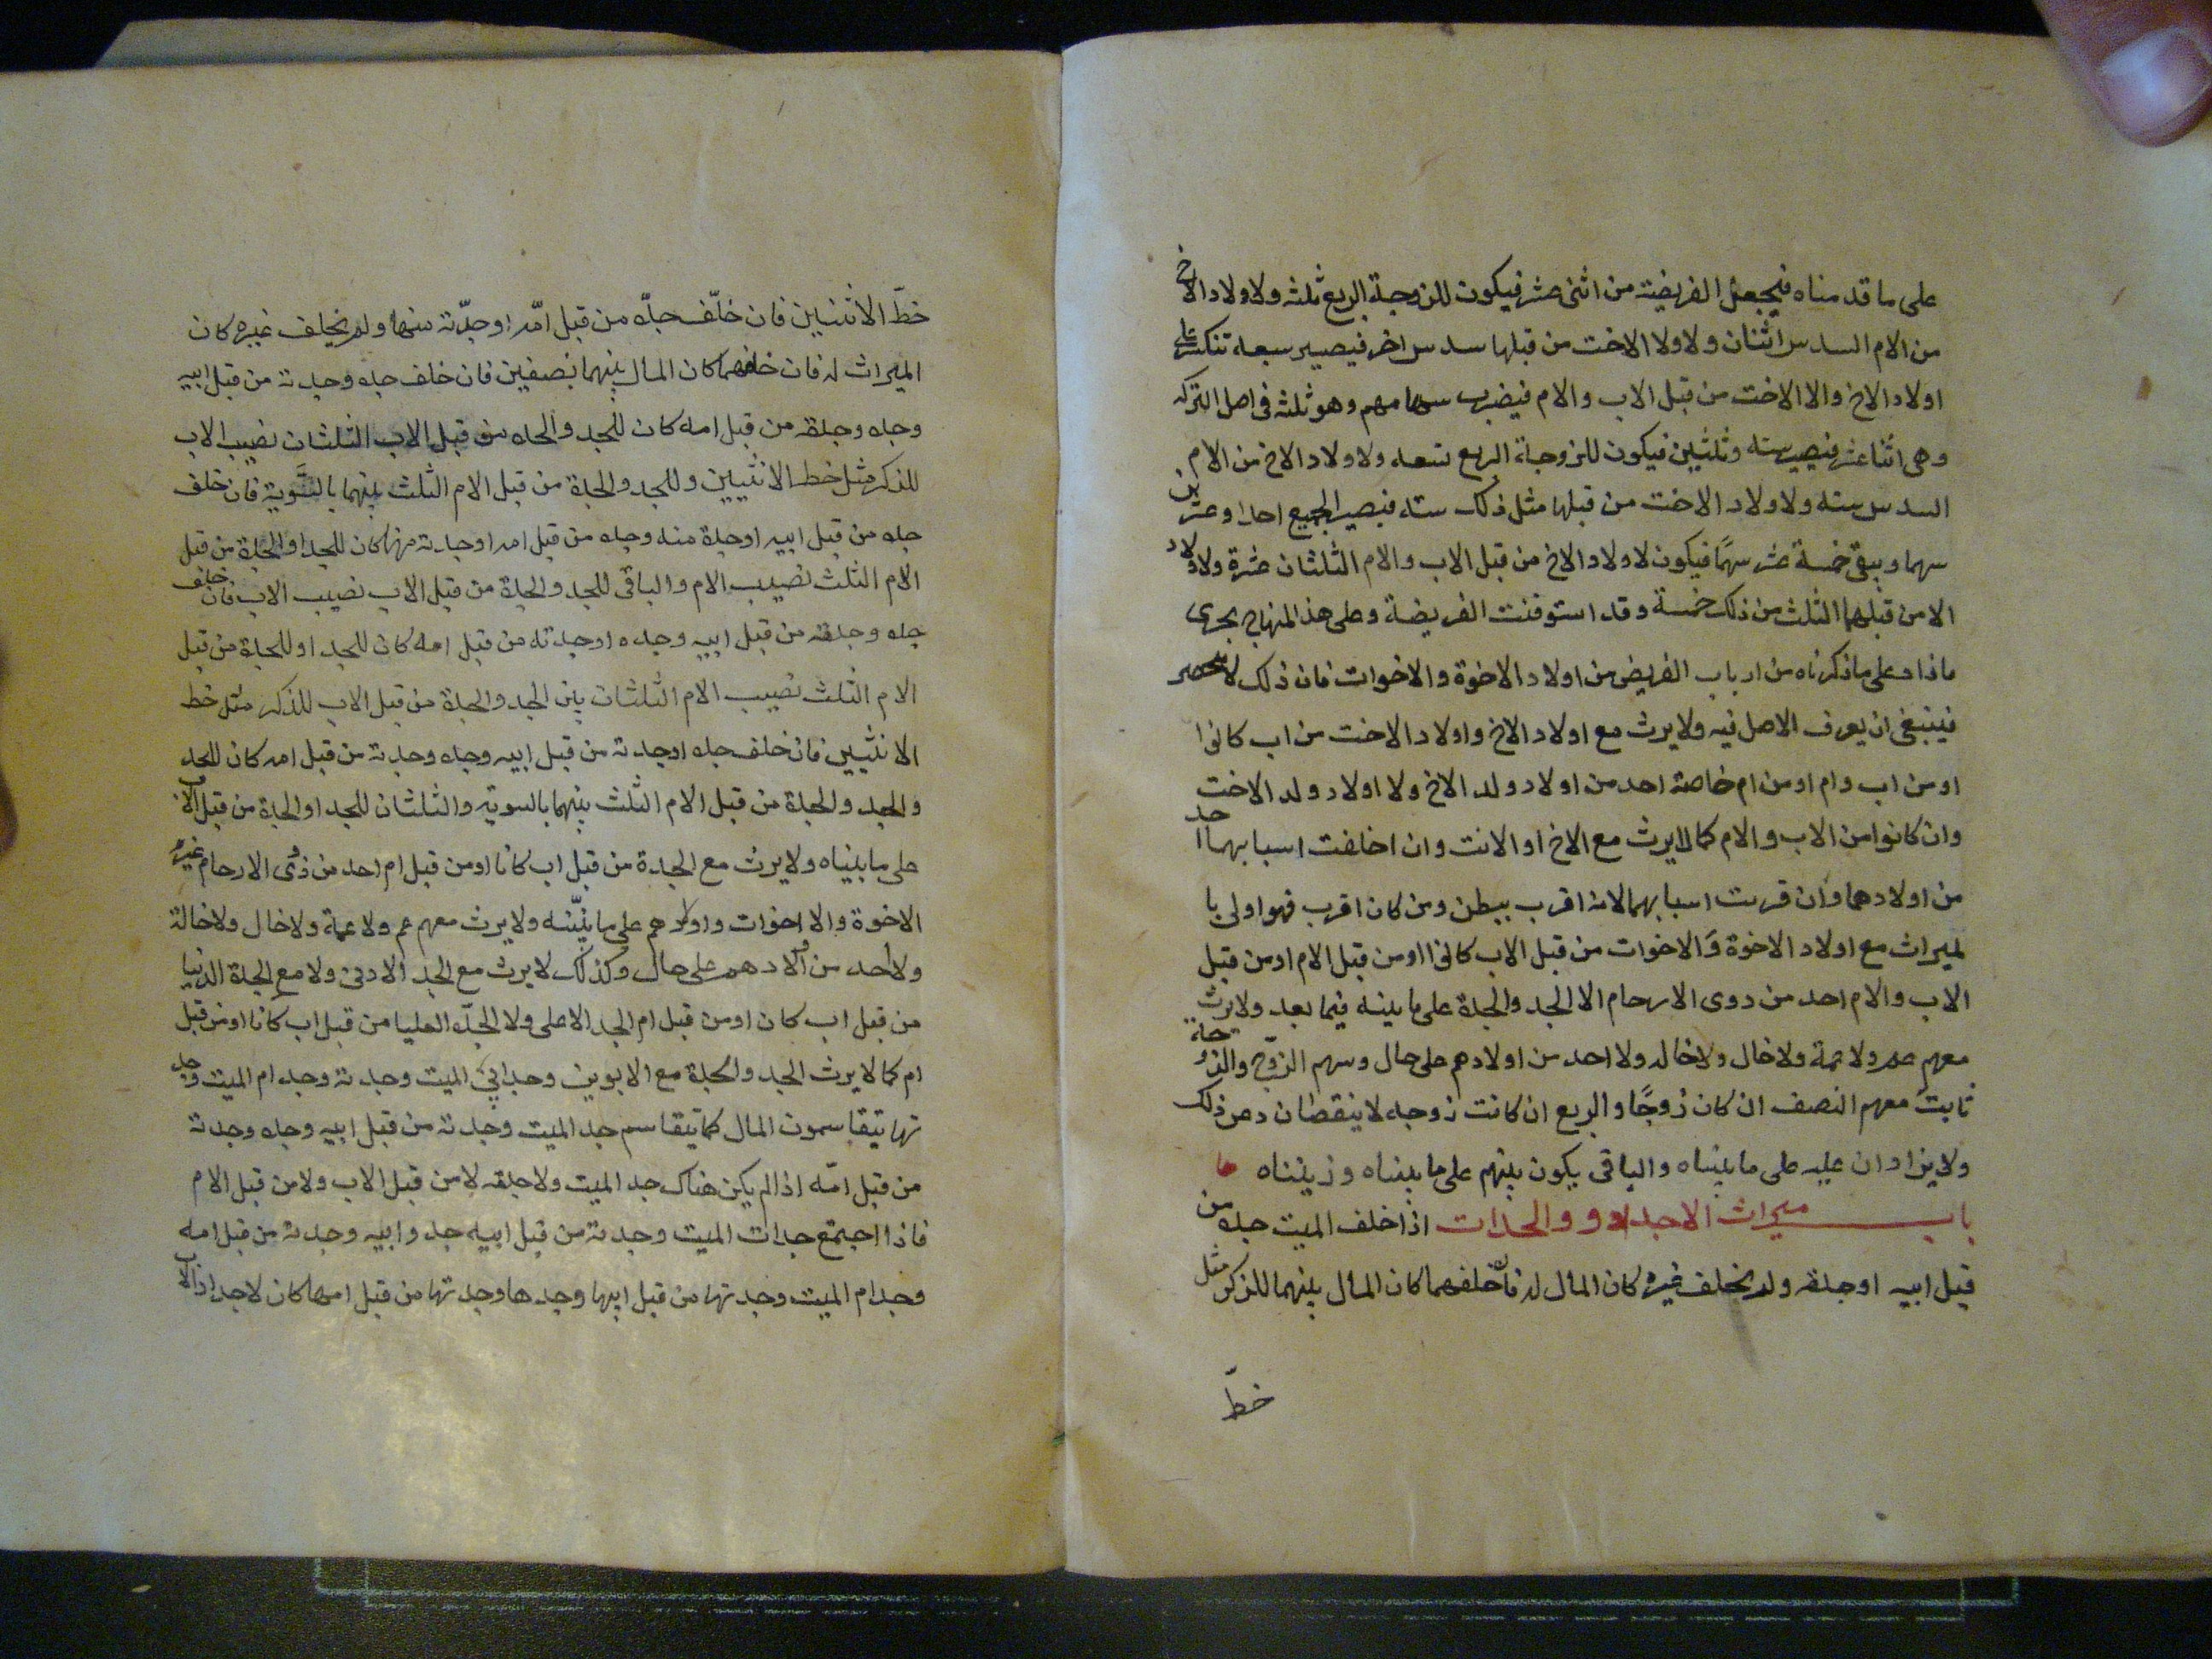 على ما قدمناه فيجعل الفريضة من اثنى عشر فيكون للزوجة الربع ثلثه ولاولاد الاخ
من الام السدس اثنان ولاولا الاخت من قبلها سدس اخر فيصير سبعه تنكسر على
اولاد الاخ والا الاخت من قبل الاب والام فيضرب سهامهم وهو ثلثه فى اصل التركه
وهى اثنا عشر فيصير سته وثلثين فيكون للزوجة الربع تسعه ولاولاد الاخ من الام
السدس سته ولاولاد الاخت من قبلها مثل ذلك سته فيصير الجميع احدا وعشرين
سهما ويبقى خمسة عشر سهمًا فيكون لاولاد الاخ من قبل الاب والام الثلثان عشرة ولاولاد
الا من قبلهما الثلث من ذلك خمسة وقد استوفنت الفريضة وعلى هذ المنهاج يجرى
ماذاد على ماذكرناه من ارباب الفريض من اولاد الاخوة والاخوات فان ذلك لا ينحصر
فينبغى ان يعرف الاصل فيه ولا يرث مع اولاد الاخ واولاد الاخت من اب كانوا
او من اب وام او من ام خاصة احد من اولاد ولد الاخ ولا اولاد ولد الاخت
وان كانوا من الاب والام كما لا يرث مع الاخ او الانت وان اخلفت اسبابهما احد
من اولادهما وان قربت اسبابهما لانه اقرب ببطن ومن كان اقرب فهو اولى با
لميراث مع اولاد الاخوة وَالاخوات من قبل الاب كانوا او من قبل الام او من قبل
الاب والام احد من دوى الارحام الا الجد والجدة على ما بينه فيما بعد ولا يرث
معهم عم ولا عمة ولا خال ولا خاله ولا احد من اولادهم على حال وسهم الزوّج والزوجة
ثابت معهم النصف ان كان زوجًا والربع ان كانت زوجه لا ينقطان دعن ذلك
ولا يزادان عليه على ما بيناه والباقى يكون بينهم على ما بيناه وزيناه ها
باب ميراث الاجداد و والجدات اذا خلف الميت جده من
قبل ابيه او جدته ولم يخلف غيره كان المال له فان خلفهما كان المال بينهما للذكر مثل
خظّ
خظّ الانثيين فان خلّف جدّه من قبل امّه او جدّته منها ولم يخلف غيره كان
الميراث له فان خلفهما كان المال بينهما نصفين فان خلف جده وجدته من قبل ابيه
وجده وجدته من قبل امه كان للجد والجده من قبل الاب الثلثان نصيب الاب
للذكر مثل خظ الانثيين وللجد والجدة من قبل الام الثلث بينهما بالسَّوية فان خلف
جده من قبل ابيه او جدة منه وجده من قبل امه او جدته منها كان للجد او الجدة من قبل
الام الثلث نصيب الام والباقى للجد والجدة من قبل الاب نصيب الاب فان خلف
جده وجدته من قبل ابيه وجده او جدته من قبل امه كان للجد او للجدة من قبل
الام الثلث نصيب الام الثلثان بين الجد والجدة من قبل الاب للذكر مثل خظ
الانثيين فان خلف جده او جدته من قبل ابيه وجده وجدته من قبل امه كان للجد
والجد والجدة من قبل الام الثلث بينهما بالسوية والثلثان للجد او الجدة من قبل الاب
على ما بيناه ولا يرث مع الجدة من قبل اب كانا او من قبل ام احد من ذوى الارحام غير
الاخوة والا اخوات واولادهم على ما نبيّنه ولا يرث معهم عم ولا عمة ولا خال ولا خالة
ولا احد من اولادهم على حال وكذلك لا يرث مع الجد الادنى ولا مع الجدة الدنيا
من قبل اب كان او من قبل ام الجد الاعلى ولا الجدّه العليا من قبل اب كانا او من قبل
ام كما لا يرث الجد والجدة مع الابوين وجد ابي الميت وجدته وجد ام الميت وجد
تها يتقاسمون المال كما يتقاسم جد الميت وجدته من قبل ابيه وجده وجدته
من قبل امّه اذا لم يكن هناك جد الميت ولا جدته لا من قبل الاب ولا من قبل الام
فاذا اجتمع جدات الميت وجدته من قبل ابيه جد وابيه وجدته من قبل امه
وجد ام الميت وجدتها من قبل ابيها وجدها وجدتها من قبل امها كان لاجداد الاب